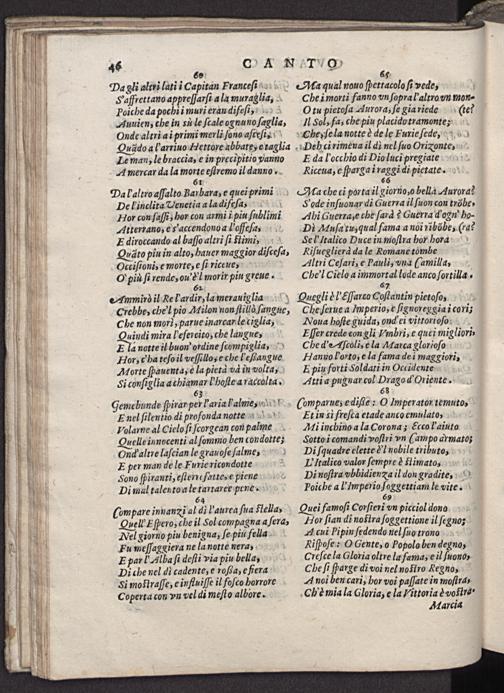 46
CANTO
60
Da gli altri lati i Capitan Francesi
S'affrettano appressarsi a la muraglia,
Poiche da pochi i muri eran difesi,
Auuien, che in sù le scale ognuno saglia,
Onde altri a i primi merli sono ascesi,
Quãdo a l'arriuo Hettore abbate, e taglia
Le man, le braccia, e in precipitio vanno
A mercar da la morte estremo il danno.
61
Da l'altro assalto Barbara, e quei primi
De l'inclita Venetia a la difesa,
Hor con sassi, hor con armi i piu sublimi
Atterrano, e s'accendono a l'offesa,
E diroccando al basso altri si stimi,
Quãto piu in alto, hauer maggior discesa,
Occisioni, e morte, e si riceue,
O' più si rende, ou'è'l morir piu greue.
62
Ammirò il Re l'ardir, la merauiglia
Crebbe, che'l pio Milon non stillò sangue,
Che non mori, parue inarcar le ciglia,
Quindi mira l'esercito, che langue,
E la notte il buon'ordine scompiglia,
Hor, c'ha teso il vessillo, e che l'essangue
Morte spauenta, e la pietà và in volta,
Si consiglia a chiamar l'hoste a raccolta.
63
Gemebunde spirar per l'aria l'alme,
E nel silentio di profonda notte
Volarne al Cielo si scorgean con palme
Quelle innocenti al sommo ben condotte;
Ond'altre lascian le grauose salme,
E per man de le Furie ricondotte
Sono spiranti, esterrefatte, e piene
Di mal talento a le tartaree pene.
64
Compare innanzi al dì l'aurea sua stella,
Quell'Espero, che il Sol compagna a sera,
Nel giorno piu benigna, se piu fella
Fu messaggiera ne la notte nera,
E par l'Alba si desti via piu bella,
Di che nel dì cadente, e rossa, e fiera
Si mostrasse, e influisse il fosco horrore
Coperta con vn vel di mesto albore.
65
Ma qual nouo spettacolo si vede,
Che i morti fanno vn sopra l'altro vn mon-
O tu pietosa Aurora, se già riede (te?
Il Sol, fa, che piu placido tramonte;
Che, se la notte è de le Furie sede,
Deh ci rimena il dì nel suo Orizonte,
E da l'occhio di Dio luci pregiate
Riceua, e sparga i raggi di pietate.
66
Ma che ci porta il giorno, o bella Aurora?
S'ode insuonar di Guerra il suon con trõbe.
Ahi Guerra, e che sarà è Guerra d'ogn'ho-
Di Musa tu, qual fama a noi ribõbe, (ra?
Se l'Italico Duce in mostra hor hora
Risueglierà da le Romane tombe
Altri Cesari, e Pauli, vna Camilla,
Che'l Cielo a immortal lode anco sortilla.
67
Quegli è l'Essarco Costantin pietoso,
Che serue a Imperio, e signoreggia i cori;
Noua hoste guida, ond'ei vittorioso
Esser crede con gli Vmbri, e quei migliori
Che d'Ascoli, e la Marca glorioso
Hanno l'orto, e la fama de i maggiori,
E piu forti Soldati in Occidente
Atti a pugnar col Drago d'Oriente.
68
Comparue, e disse: O Imperator temuto,
Et in si fresca etade anco emulato,
Mi inchino a la Corona; Ecco l'aiuto
Sotto i comandi vostri vn Campo armato;
Di squadre elette è'l nobile tributo,
L'Italico valor sempre è stimato,
Di nostra vbbidienza il don gradite,
Poiche a l'Imperio soggettiam le vite.
69
Quei famosi Corsieri vn picciol dono
Hor sian di nostra soggettione il segno;
A cui Pipin sedendo nel suo trono
Rispose: O Gente, o Popolo ben degno,
Cresce la Gloria oltre la fama, e il suono,
Che si sparge di voi nel nostro Regno,
A noi ben cari, hor voi passate in mostra,
Ch'è mia la Gloria, e la Vittoria è vostra.
Marcia